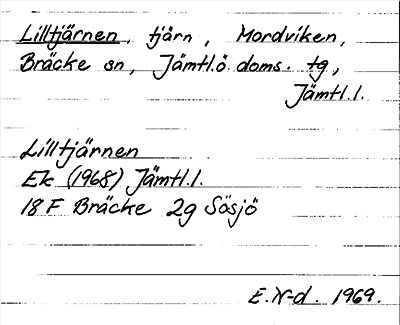 Lilltjärnen, tjärn, Mordviken,
Bräcke sn, Jämtl.ö. doms. tg,
Jämtl.l.
Lilltjärnen
Ek (1968) Jämtl.l.
18 F Bräcke 2g Sösjö
E.N-d. 1969.